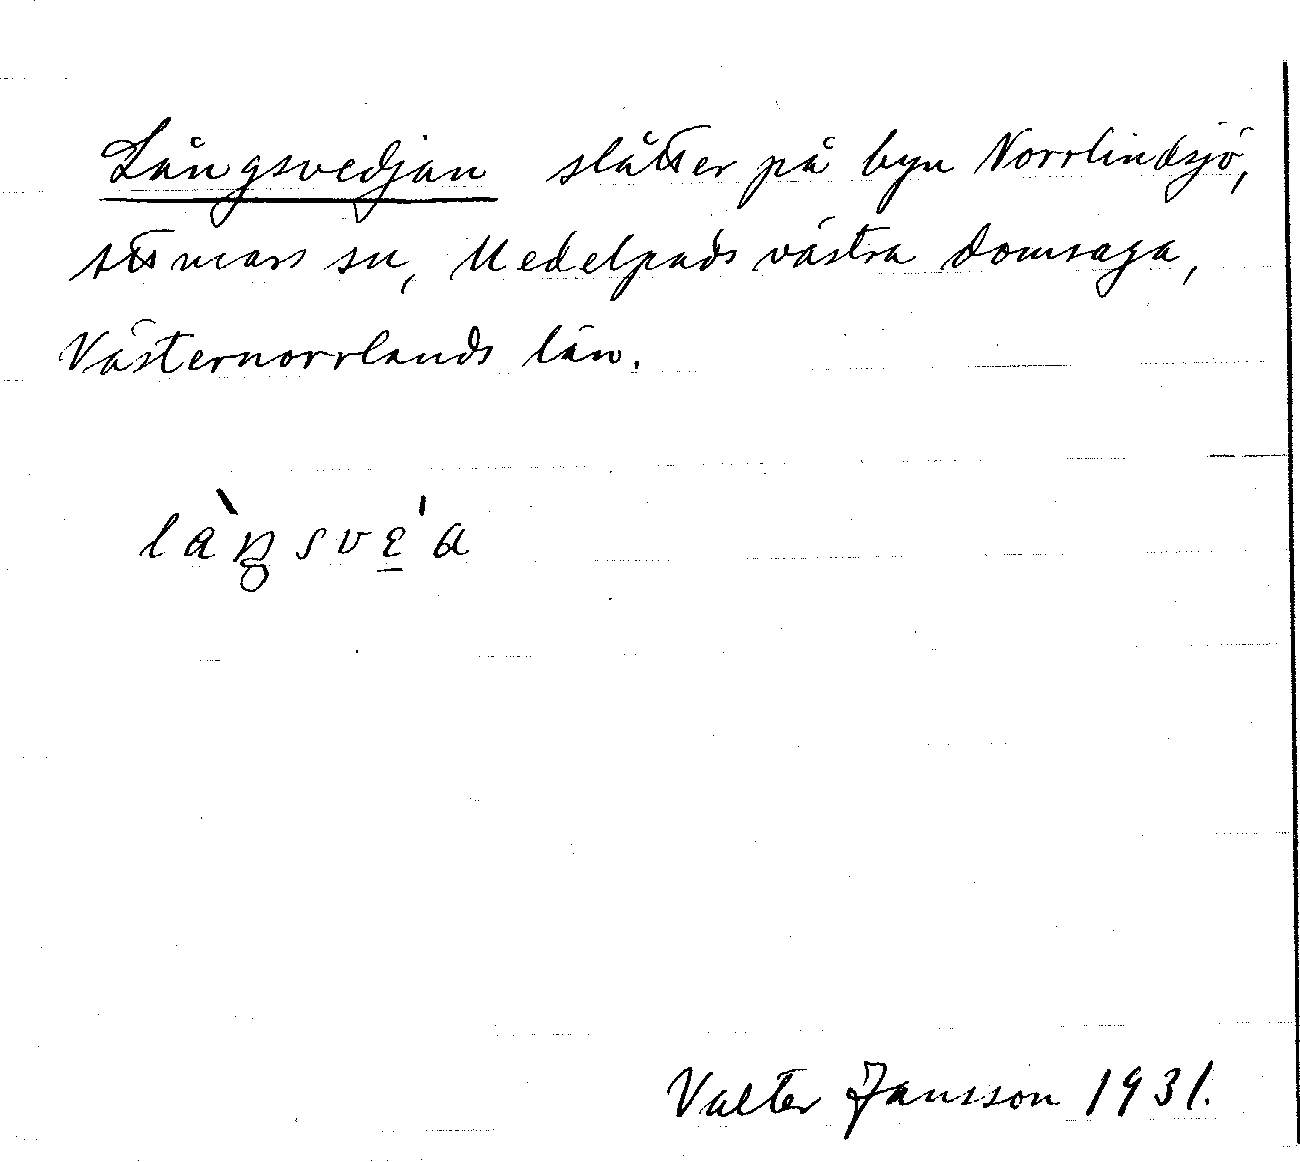 Långsvedjan slåtter på byn Norrlindsjö,
Attmars sn, Medelpads västra domsaga,
Västernorrlands län.
làŋsvε̱'a
Valter Jansson 1931.